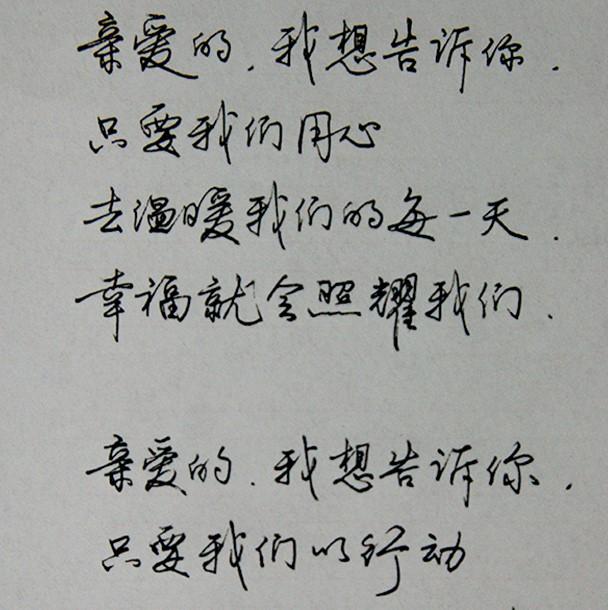 亲爱的,我想告诉你,
只要我们用心
去温暖我们的每一天,
幸福就会照耀我们.

亲爱的,我想告诉你,
只要我们以行动